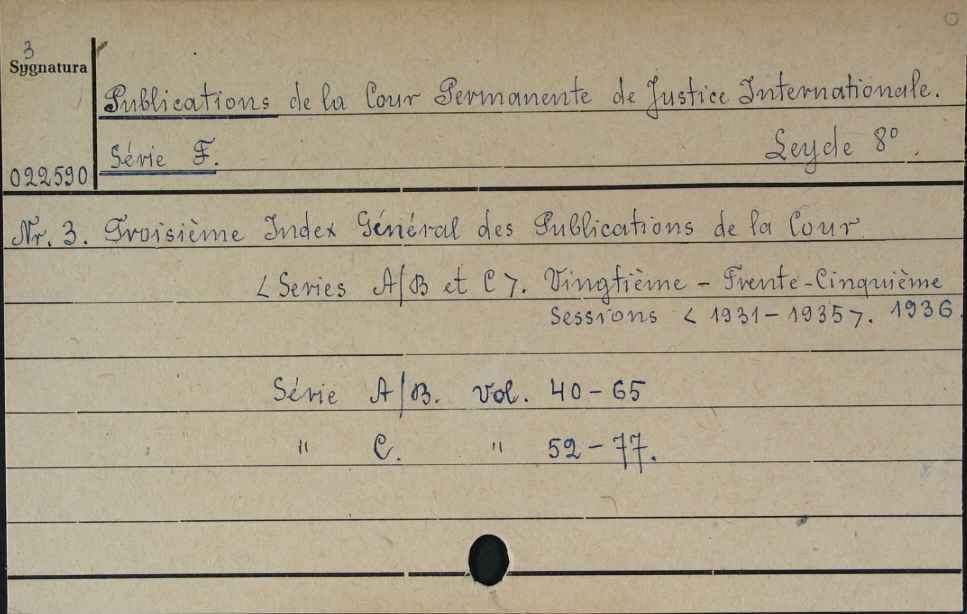 3
Sygnatura
Publications de la Cour Permanente de Justice Internationale.
Série F. Leyde 8º.
022590
Nr. 3. Troisième Index Général des Publications de la Cour
<Series A/B et C>. Vingtième - Trente-Cinquième
Sessions <1931-1935>. 1936.
Série A/B. vol. 40-65
" C. " 52-77.